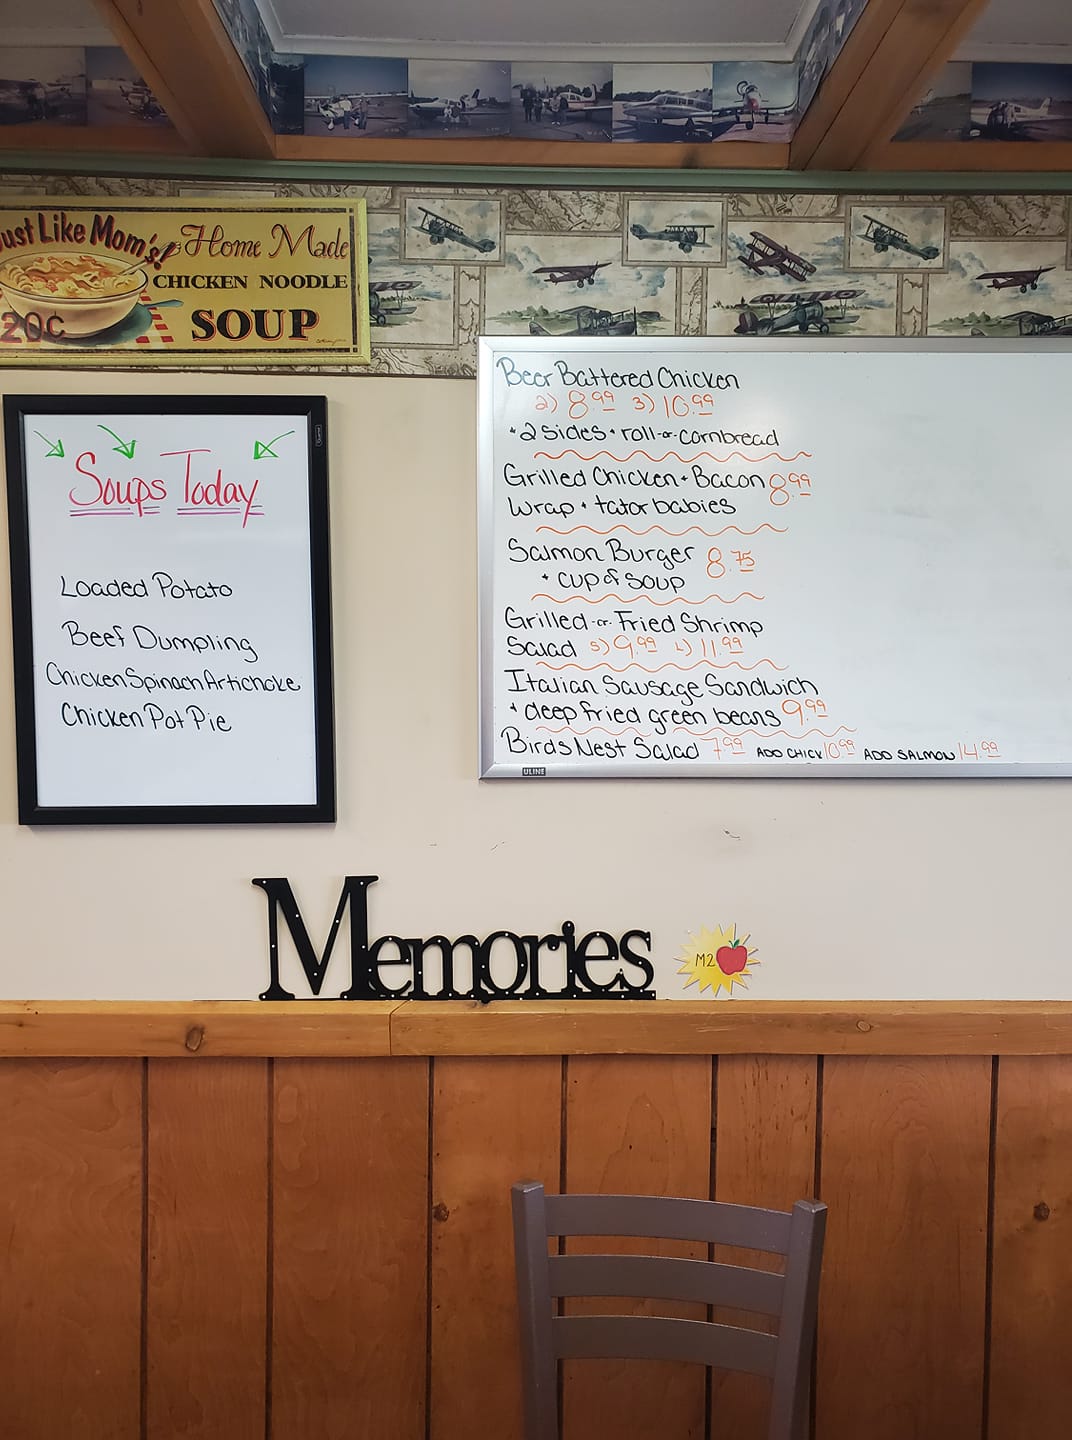 Just Like Mom's!
Home Made
CHICKEN NOODLE
SOUP
20¢
Soups Today
Loaded Potato
Beef Dumpling
Chicken Spinach Artichoke
Chicken Pot Pie
Beer Battered Chicken
2) 8.99 3) 10.99
+ 2 sides + roll -or- cornbread
Grilled Chicken + Bacon 8.99
Wrap + tator babies
Salmon Burger 8.75
+ cup of soup
Grilled -or- Fried Shrimp
Salad s) 9.99 L) 11.99
Italian Sausage Sandwich
+ deep fried green beans 9.99
Birds Nest Salad 7.99 ADD CHICK 10.99 ADD SALMON 14.99
ULINE
Memories
M2